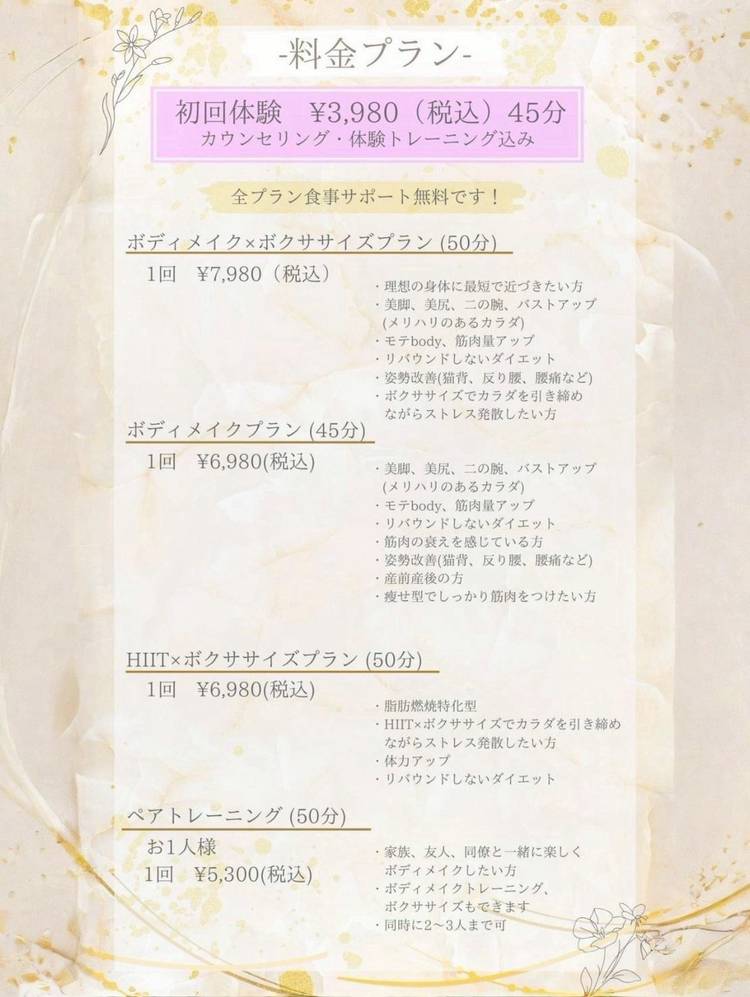 -料金プラン-
初回体験　¥3,980（税込）45分
カウンセリング・体験トレーニング込み
全プラン食事サポート無料です！
ボディメイク×ボクササイズプラン (50分)
1回　¥7,980（税込）
・理想の身体に最短で近づきたい方
・美脚、美尻、二の腕、バストアップ
(メリハリのあるカラダ)
・モテbody、筋肉量アップ
・リバウンドしないダイエット
・姿勢改善(猫背、反り腰、腰痛など)
・ボクササイズでカラダを引き締め
ながらストレス発散したい方
ボディメイクプラン (45分)
1回　¥6,980(税込)
・美脚、美尻、二の腕、バストアップ
(メリハリのあるカラダ)
・モテbody、筋肉量アップ
・リバウンドしないダイエット
・筋肉の衰えを感じている方
・姿勢改善(猫背、反り腰、腰痛など)
・産前産後の方
・痩せ型でしっかり筋肉をつけたい方
HIIT×ボクササイズプラン (50分)
1回　¥6,980(税込)
・脂肪燃焼特化型
・HIIT×ボクササイズでカラダを引き締め
ながらストレス発散したい方
・体力アップ
・リバウンドしないダイエット
ペアトレーニング (50分)
お1人様
1回　¥5,300(税込)
・家族、友人、同僚と一緒に楽しく
ボディメイクしたい方
・ボディメイクトレーニング、
ボクササイズもできます
・同時に2〜3人まで可